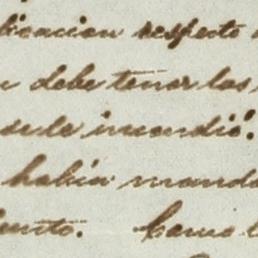 licacion respecto
debe tener las
se le incendió.
había manda
ento. Como l